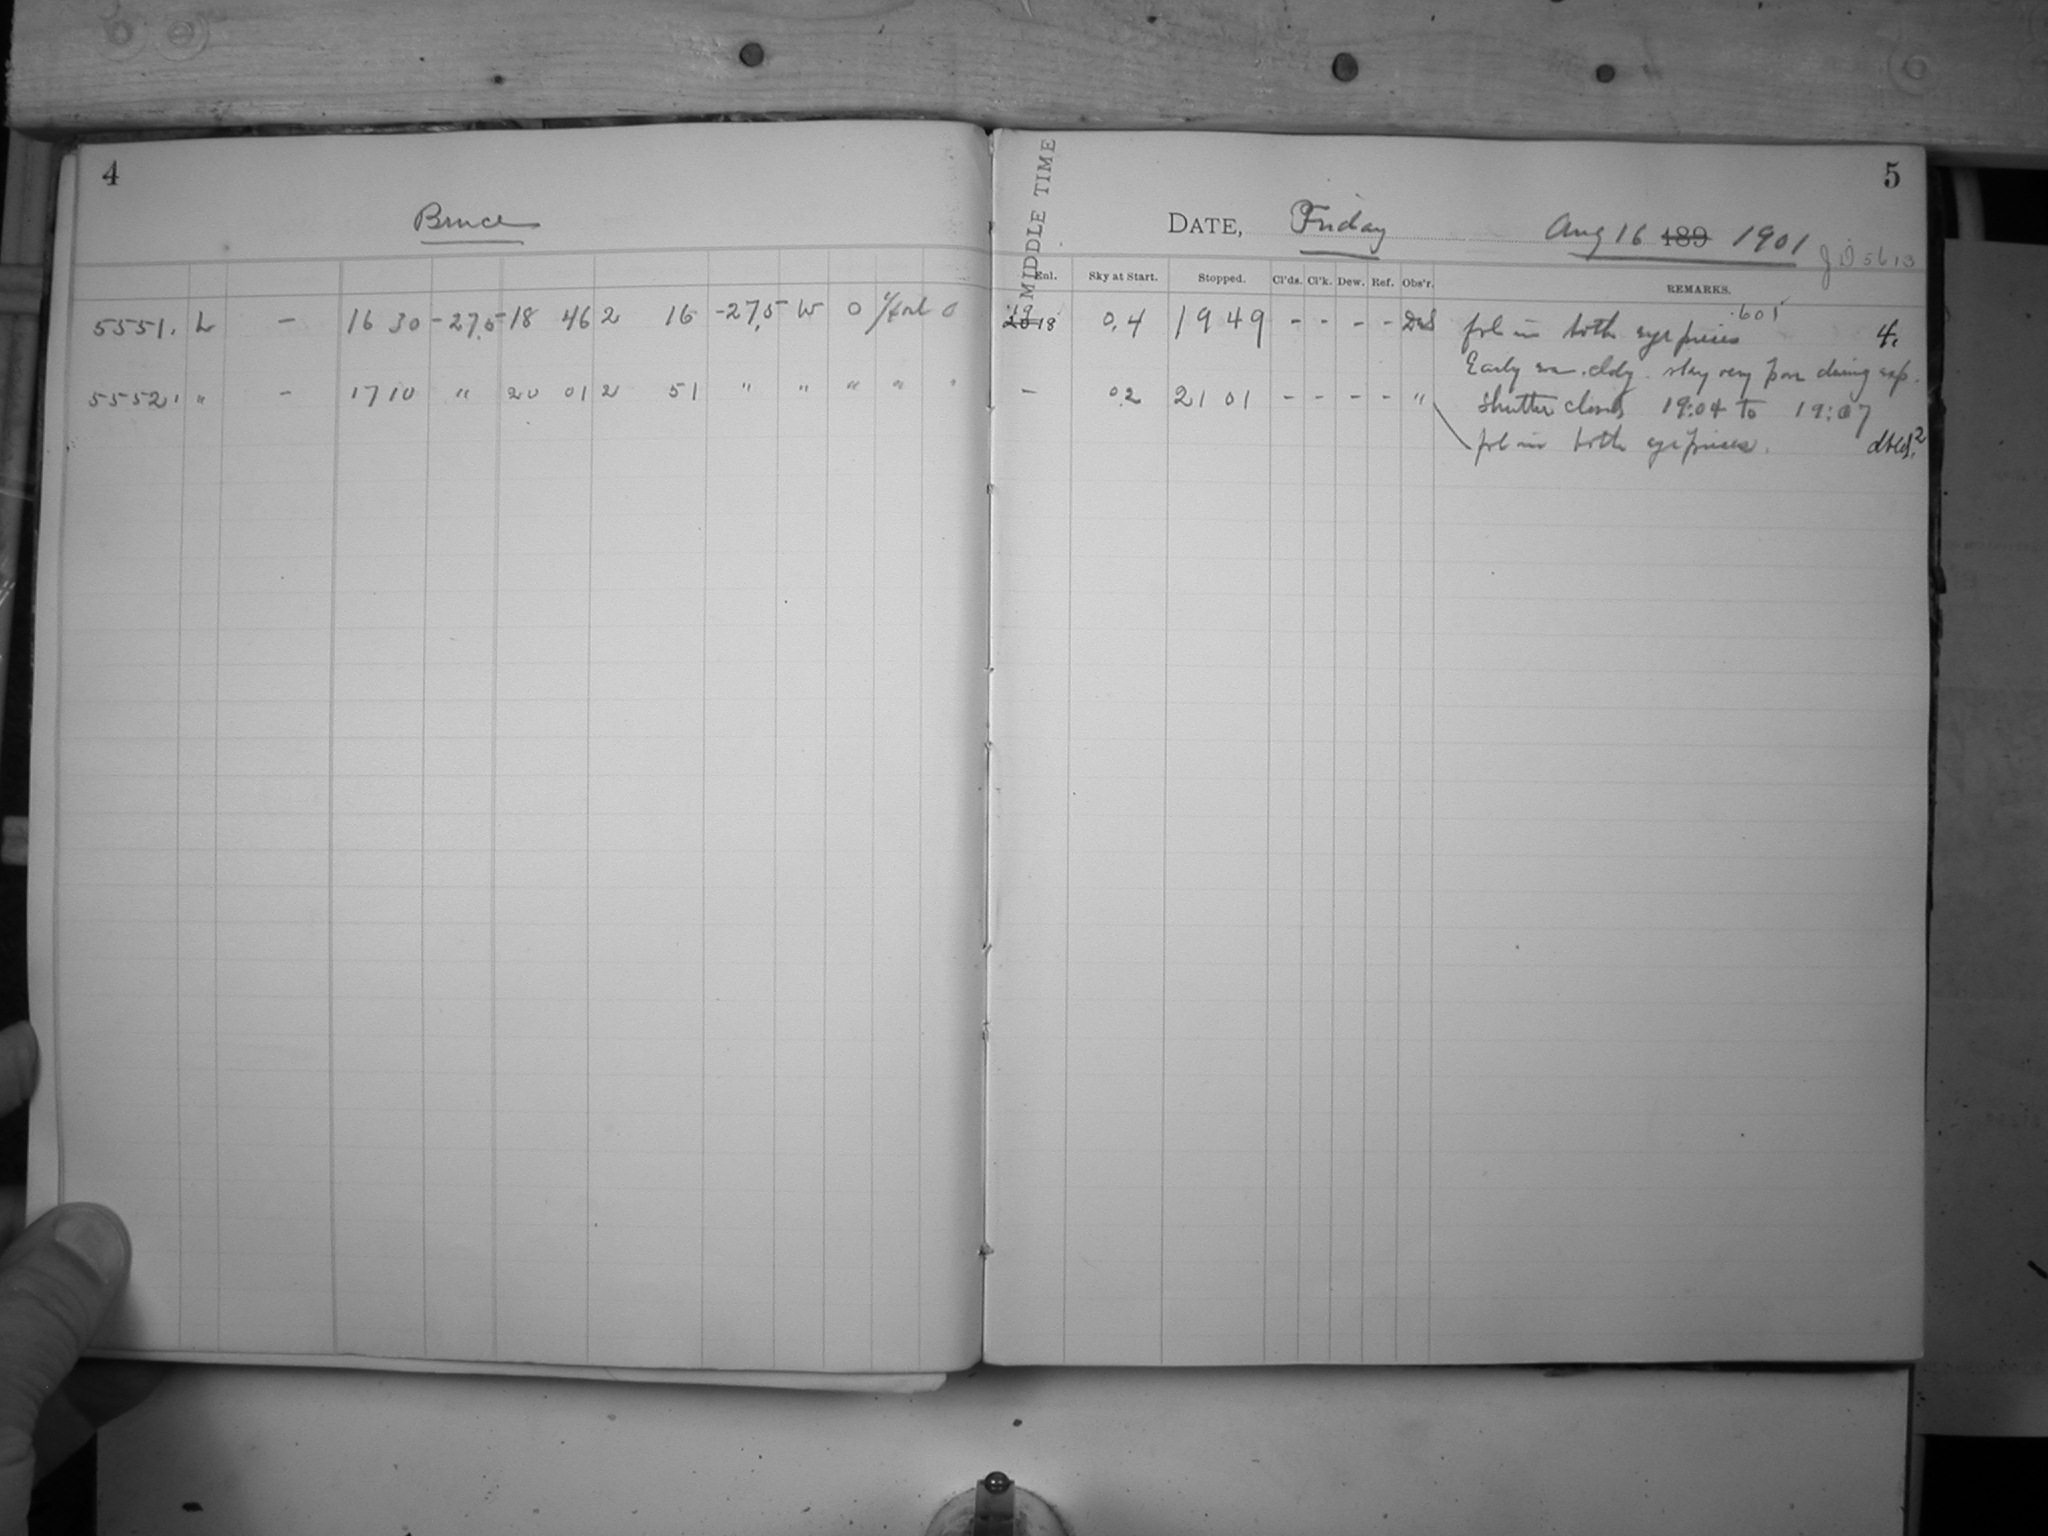 4
Bruce
5551. L - 16 30 -27.5 18 46 2 16 -27.5 W 0 0
5552. " - 17 10 " 20 01 2 51 " " " " "
5
MIDDLE TIME
DATE, Friday Aug 16 189 1901
JD 5613
Enl. Sky at Start. Stopped. Cl'ds. Cl'k. Dew. Ref. Obs'r. REMARKS.
19
20 18 0.4 19 49 - - - - fol in both eye pieces .605 4.
Early cldy. sky very poor during exp.
- 0.2 21 01 - - - - " Shutter closed 19:04 to 19:07
fol in both eye pieces.